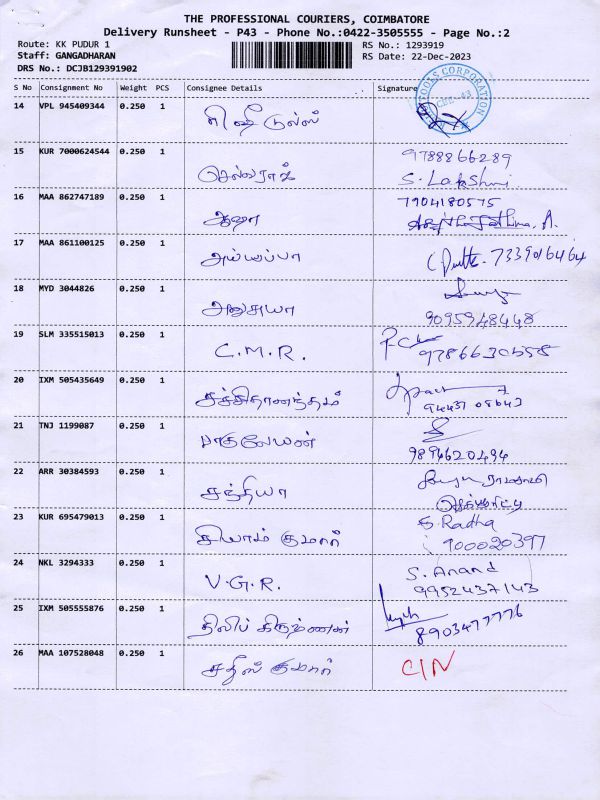 THE PROFESSIONAL COURIERS, COIMBATORE
Delivery Runsheet - P43 - Phone No.:0422-3505555 - Page No.:2
Route: KK PUDUR 1
RS No.: 1293919
Staff: GANGADHARAN
RS Date: 22-Dec-2023
DRS No.: DCJB129391902
S No Consignment No Weight PCS Consignee Details Signature
14 VPL 945409344 0.250 1
15 KUR 7000624544 0.250 1 9788866289
செல்வராஜ் S. Lakshmi
16 MAA 862747189 0.250 1 7904180575
ஆஷா
17 MAA 861100125 0.250 1
அய்யப்பா 7339016464
18 MYD 3044826 0.250 1
அனுசுயா 9095948448
19 SLM 335515013 0.250 1
C.M.R. 9786630558
20 IXM 505435649 0.250 1
சச்சிதானந்தம்
21 TNJ 1199087 0.250 1
9894620494
22 ARR 30384593 0.250 1
சத்தியா
23 KUR 695479013 0.250 1 S. Radha
குமார் 900020397
24 NKL 3294333 0.250 1 S. Anand
V.G.R. 9952437143
25 IXM 505555876 0.250 1
திலிப் கிருஷ்ணன் 8903477776
26 MAA 107528048 0.250 1
சதீஸ் குமார் C/N